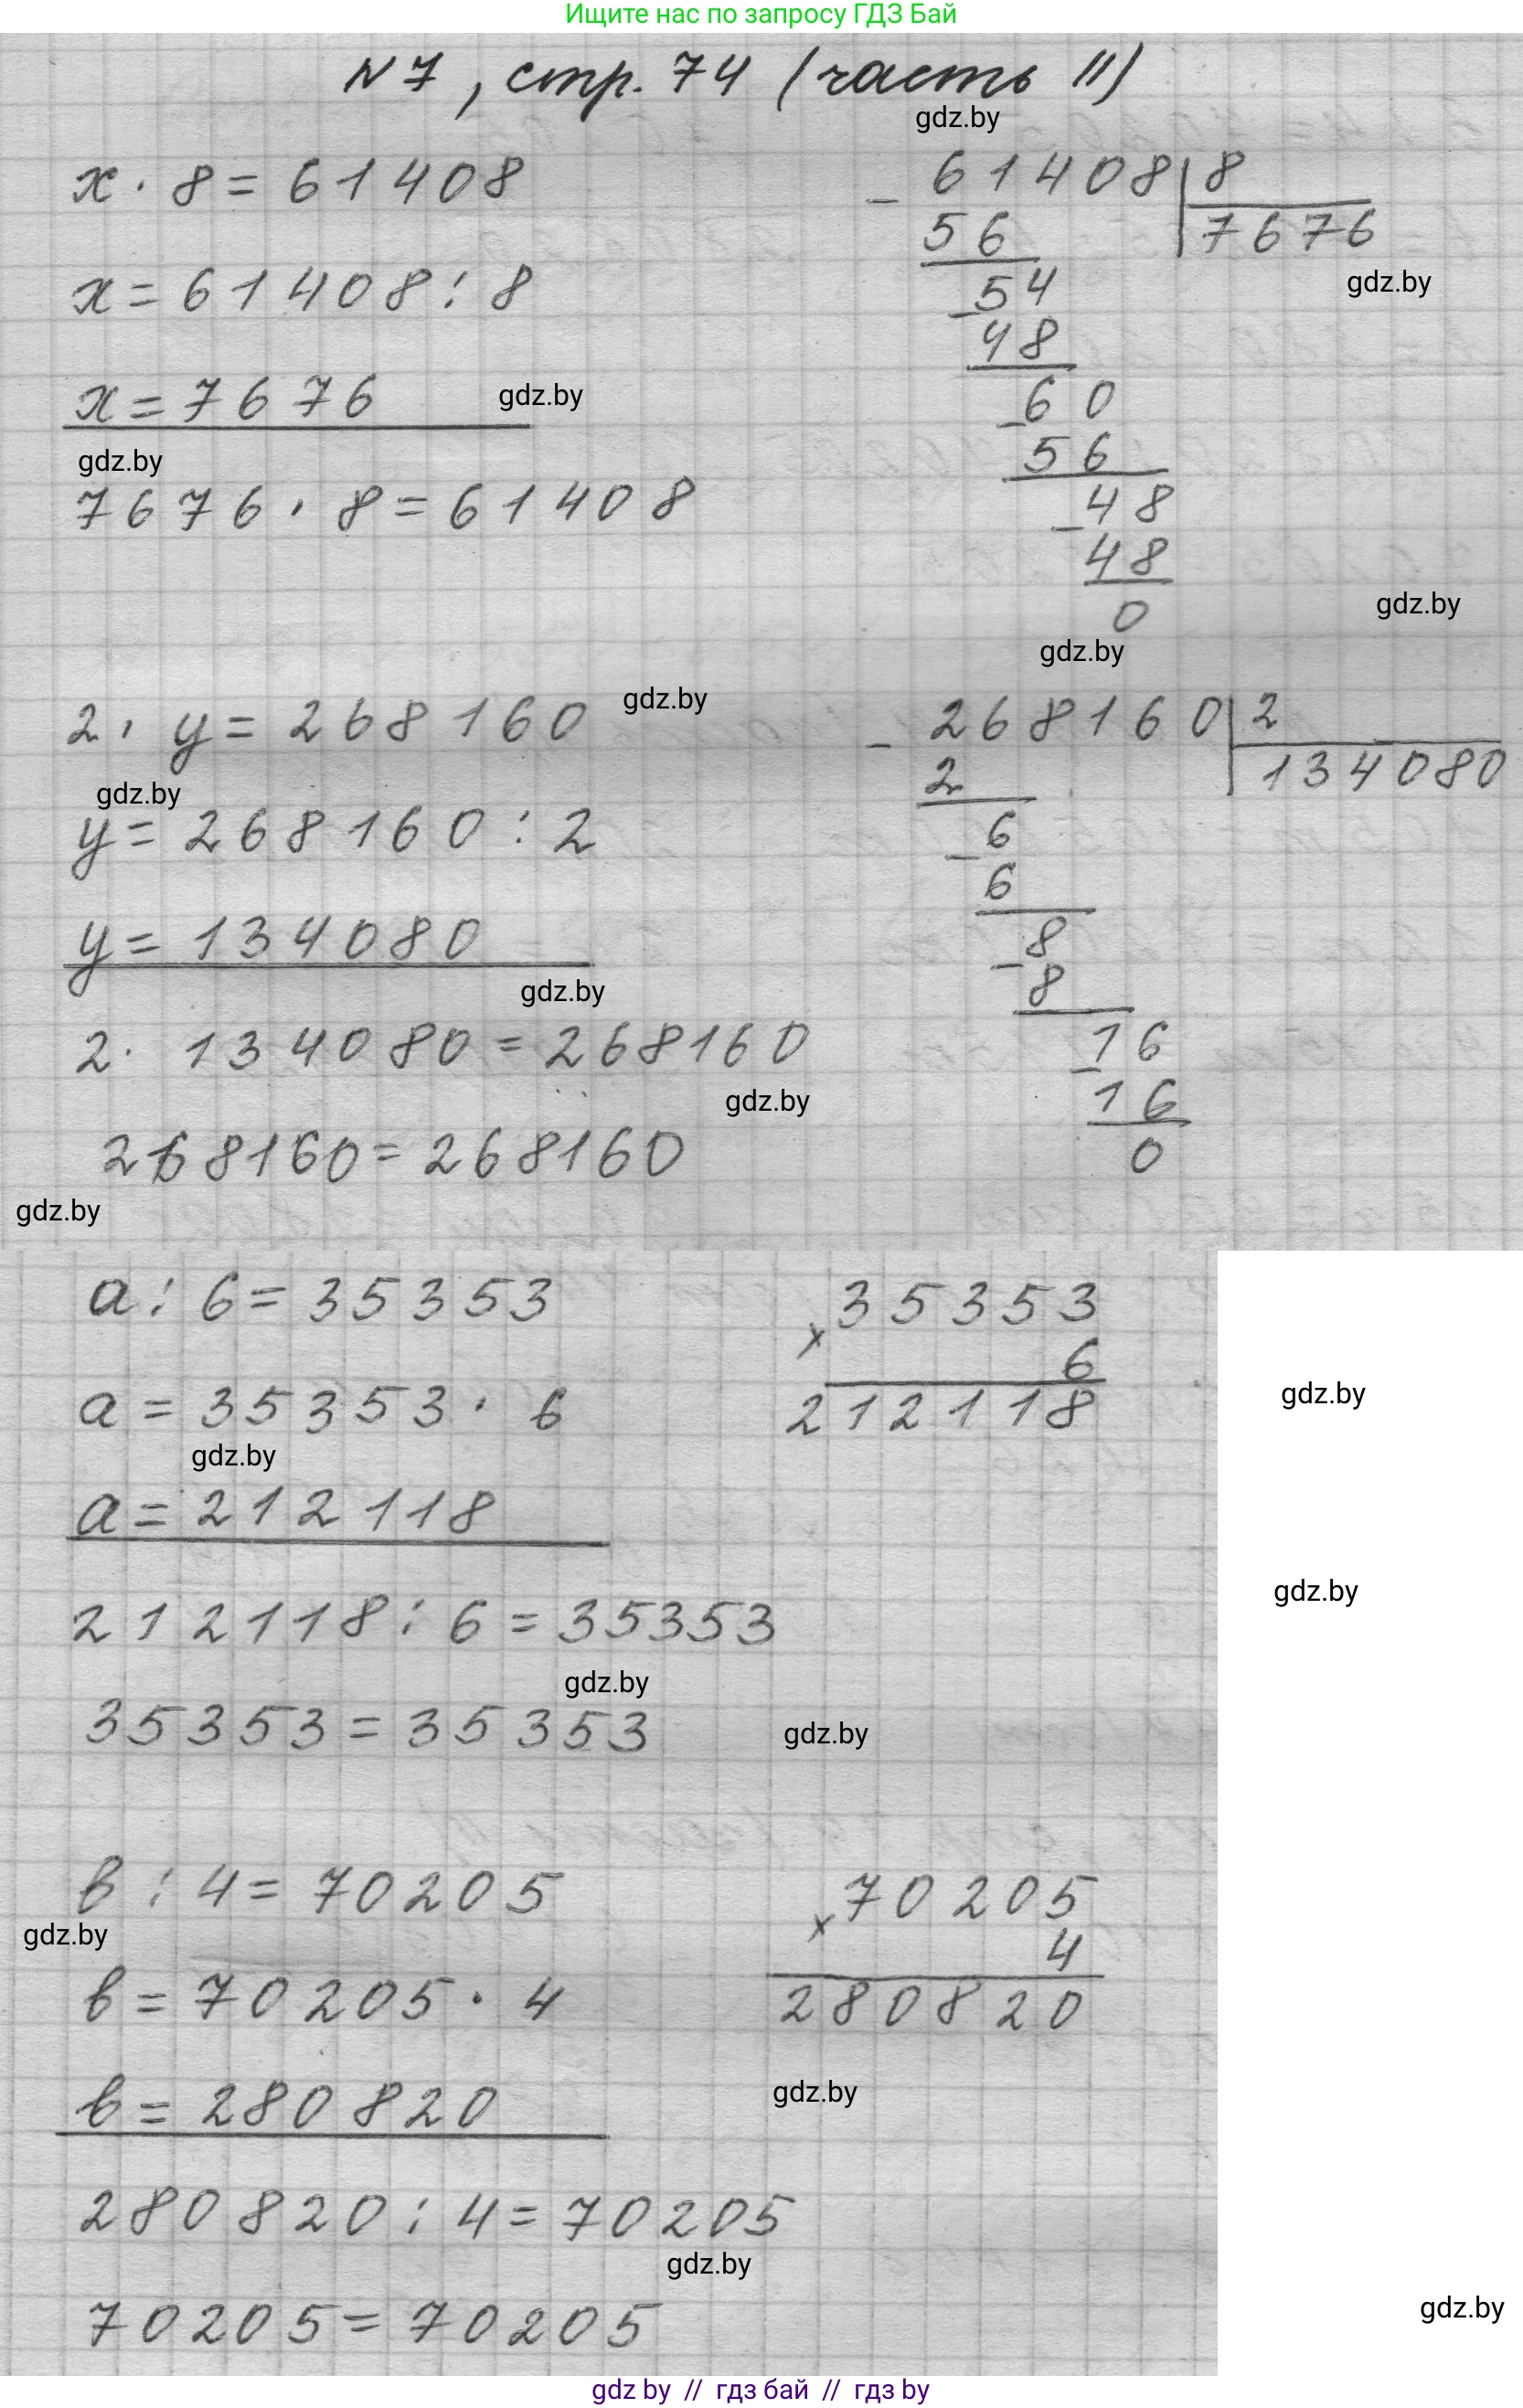 Ищите нас по запросу ГДЗ Бай
N 7, стр. 74 (часть II)
gdz.by
x · 8 = 61408
x = 61408 : 8
x = 7676
gdz.by
gdz.by
7676 · 8 = 61408
- 61408 | 8
56 7676
gdz.by
- 54
48
- 60
56
- 48
48
0
gdz.by
gdz.by
2 · y = 268160
gdz.by
gdz.by
y = 268160 : 2
y = 134080
gdz.by
2 · 134080 = 268160
gdz.by
268160 = 268160
gdz.by
- 268160 | 2
2 134080
- 6
6
- 8
8
- 16
16
0
a : 6 = 35353
a = 35353 · 6
gdz.by
a = 212118
212118 : 6 = 35353
gdz.by
35353 = 35353
gdz.by
x 35353
6
212118
gdz.by
gdz.by
в : 4 = 70205
gdz.by
в = 70205 · 4
в = 280820
280820 : 4 = 70205
gdz.by
70205 = 70205
x 70205
4
280820
gdz.by
gdz.by
gdz by // гдз бай // гдз by